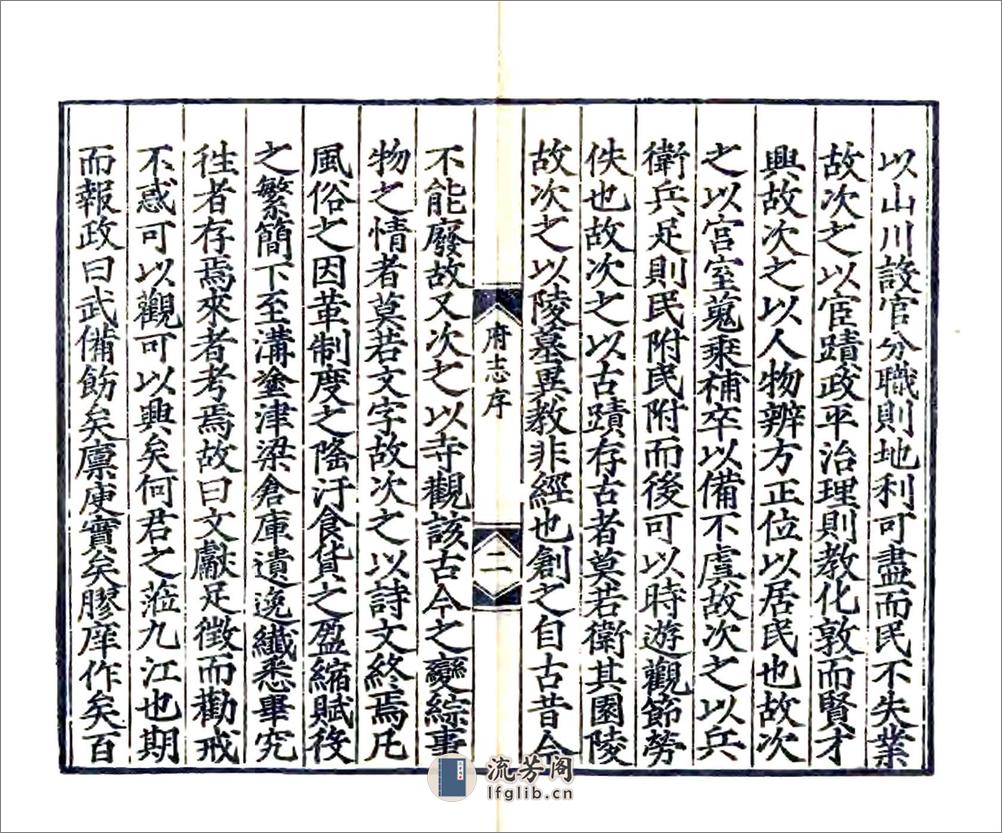 以山川設官分職則地利可盡而民不失業
故次之以宦蹟政平治理則教化敦而賢才
興故次之以人物辨方正位以居民也故次
之以宫室蒐乘補卒以備不虞故次之以兵
衛兵足則民附民附而後可以時遊觀節勞
佚也故次之以古蹟存古者莫若衛其園陵
故次之以陵墓異教非經也創之自古昔今
府志序
二
不能廢故又次之以寺觀該古今之變綜事
物之情者莫若文字故次之以詩文終焉凡
風俗之因革制度之隆汙食貨之盈縮賦役
之繁簡下至溝塗津梁倉庫遺逸纖悉畢究
徃者存焉來者考焉故曰文獻足徵而勸戒
不惑可以觀可以興矣何君之蒞九江也期
而報政曰武備飭矣廪庾實矣膠庠作矣百
流芳阁
lfglib.cn